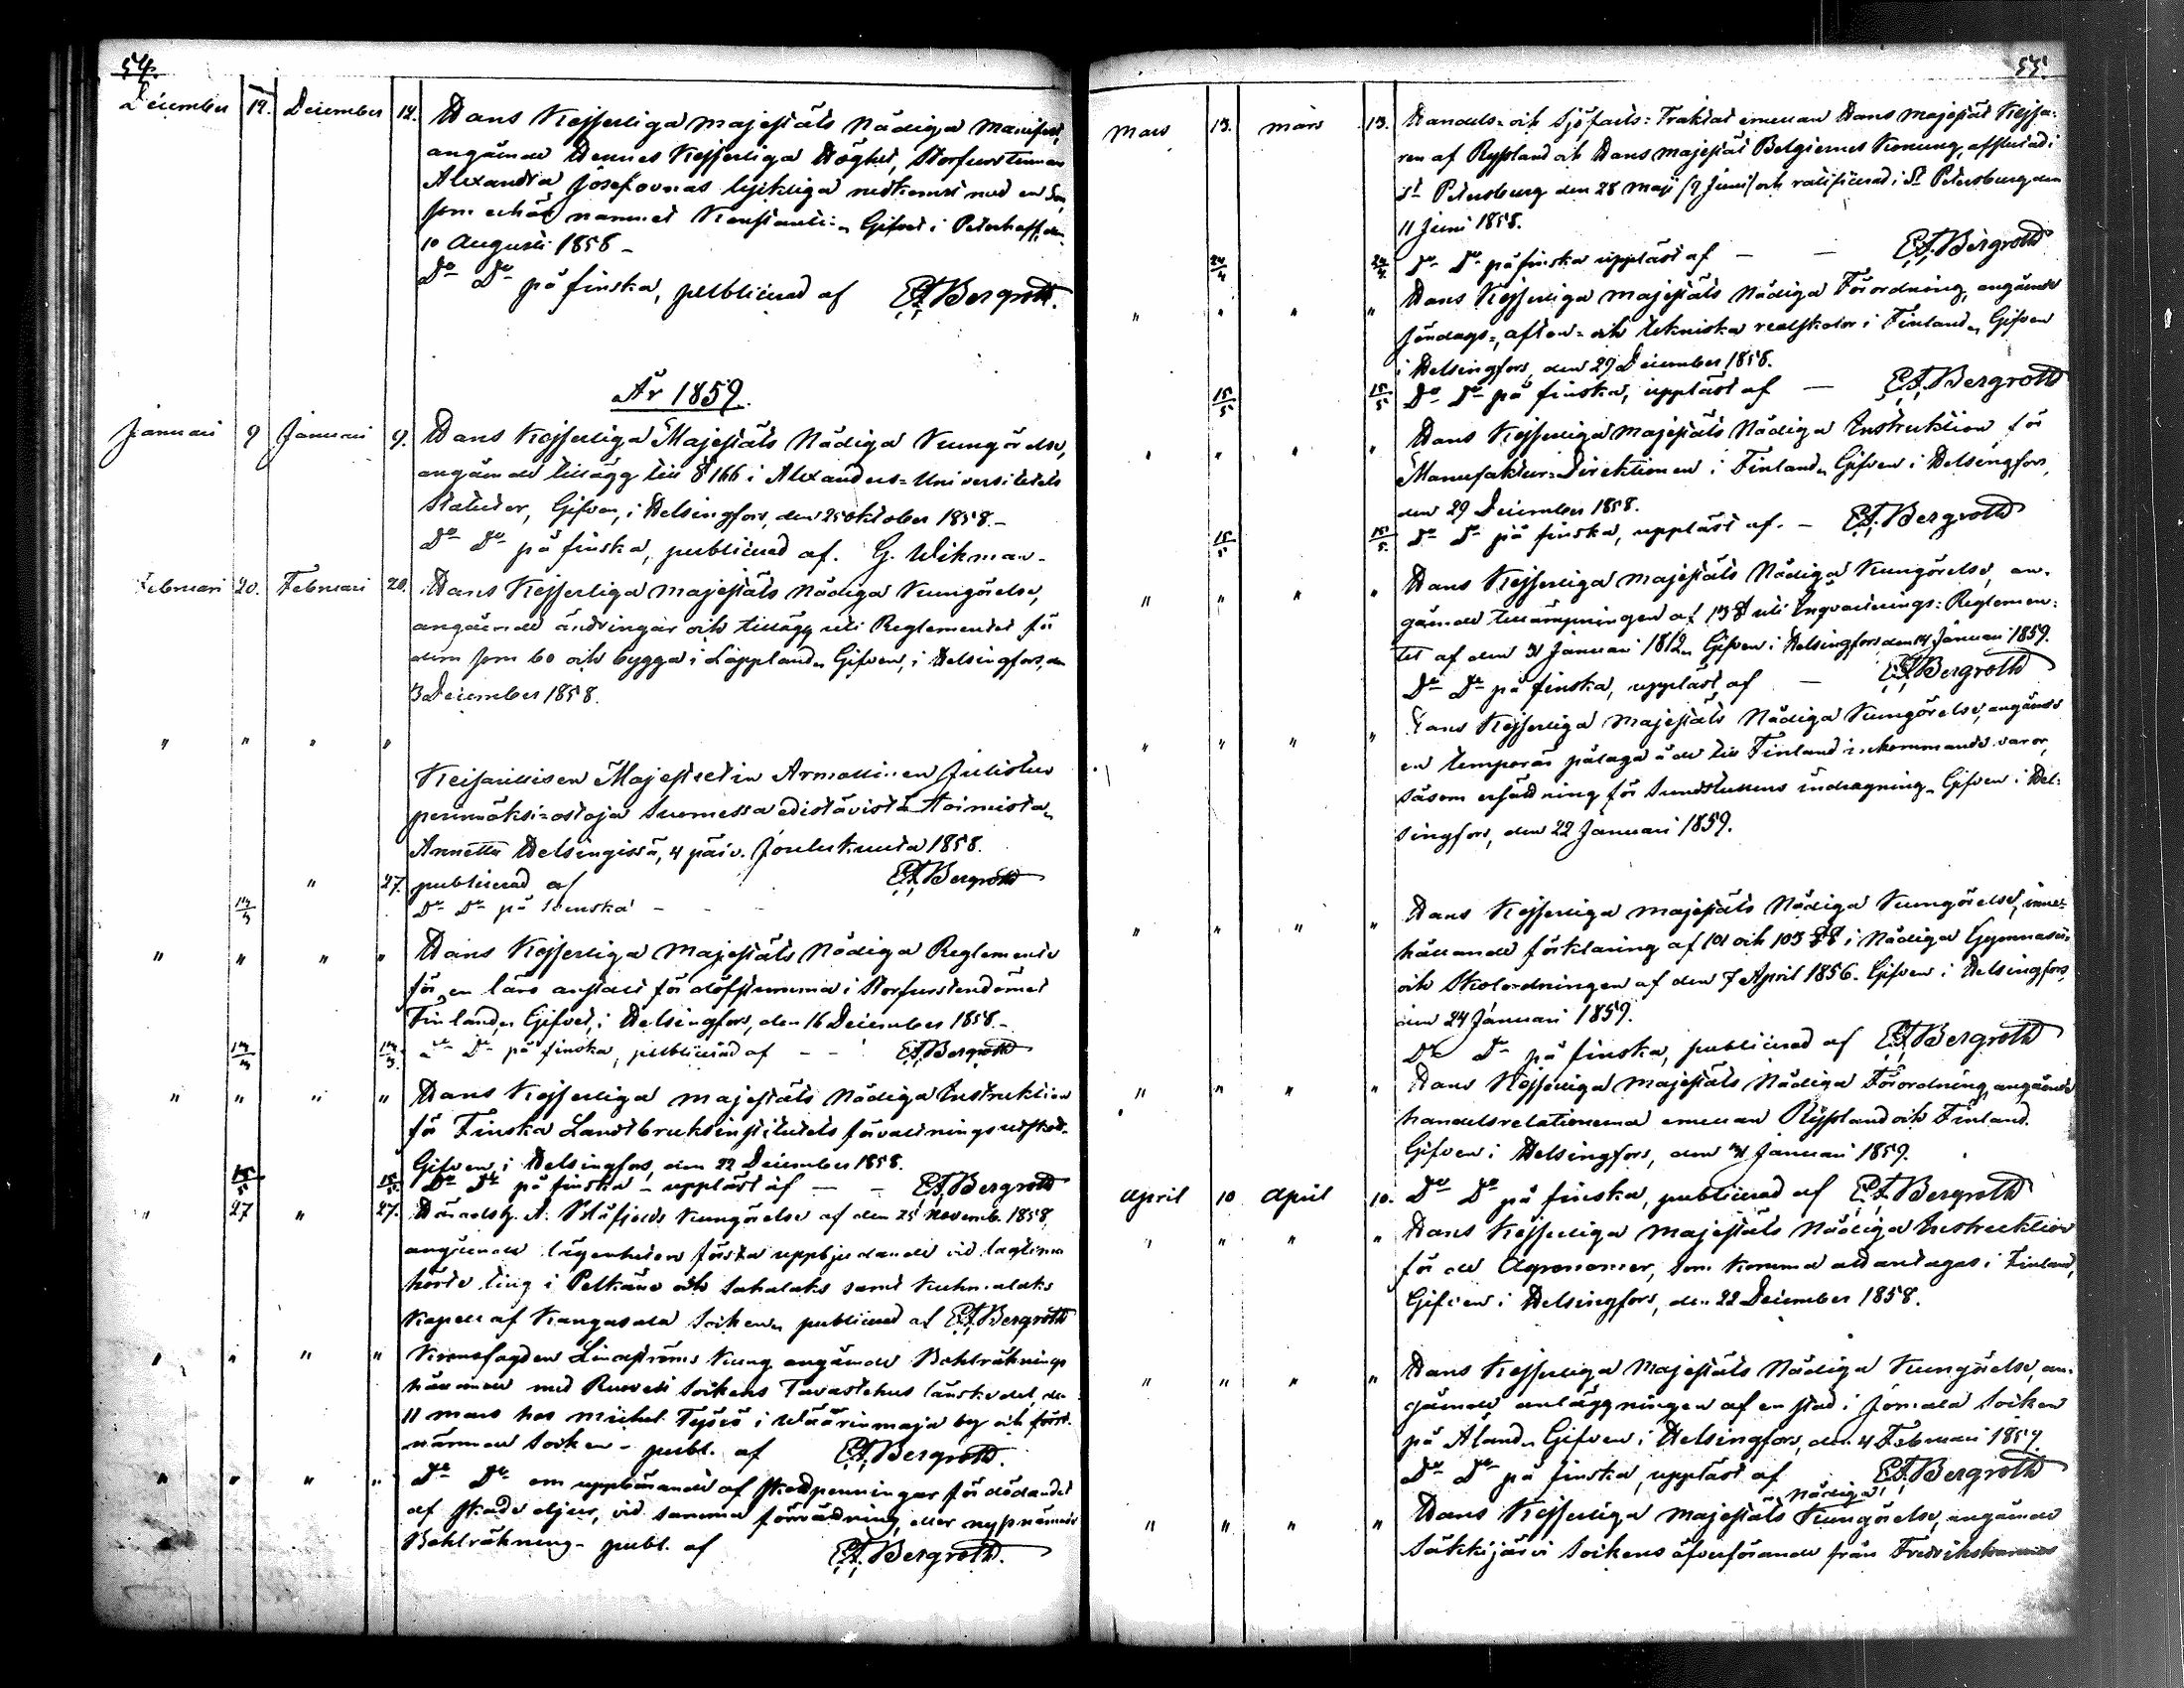 54.
December 19. December 19. Hans Kejserliga Majestäts Nådiga Manifest,
angående Hennes Kejserliga Höghet, Storfurstinnan
Alexandra Josefovnas lyckliga nedkomst med en Son,
som erhållit namnet Konstantin. Gifvet i Peterhoff, den
10 Augusti 1858 –
Do Do på finska, publicerad af E.A. Bergroth.
År 1859.
Januari 9 Januari 9. Hans Kejserliga Majestäts Nådiga Kungörelse,
angående tillägg till § 166 i Alexanders-Universitetets
Statuter, Gifven, i Helsingfors, den 25 oktober 1858. –
Do Do på finska, publicerad af. G. Wikman –
Februari 20. Februari 20. Hans Kejserliga Majestäts Nådiga Kungörelse,
angående ändringar och tillägg uti Reglementet för
dem som bo och bygga i Lappland. Gifven, i Helsingfors, den
3 December 1858.
" " " "
Keisarillisen Majestetin Armollinen Julistus
perinnöksi-ostoja Suomessa edistävistä toimista.
Annettu Helsingissä, 4 päiv. Joulukuuta 1858.
" 27. publicerad af E.A. Bergroth
Do Do på Svenska – – –
" " " " Hans Kejserliga Majestäts Nådiga Reglemente
för en läro anstalt för döfstumma i Storfurstendömet
Finland. Gifvet, i Helsingfors, den 16 December 1858. –
Do Do på finska, publicerad af – – E.A. Bergroth
" " " " Hans Kejserliga Majestäts Nådiga Instruktion
för Finska Landtbruksinstitutets förvaltningsutskott.
Gifven, i Helsingfors, den 22 December 1858.
15/5 15/5 Do Do på finska – uppläst af — – E.A. Bergroth
" 27 " 27. Häradsh. A. Blåfjelds Kungörelse af den 25 Novemb. 1858,
angående lägenheters första uppbjudande vid lagtima
höste ting i Pelkäne och Sahalaks samt Kuhmalaks
Kapell af Kangasala Socken. publicerad af E.A. Bergroth
" " " " Kronofogden Lindströms Kung. angående Bohlräknings
hållande med Ruovesi Sockens Tavastehus länske del, den
11 mars hos Michel i Wäärinmaja by och först-
nämnde Socken – publ. af E.A. Bergroth.
" " " " Do Do om uppbärande af skottpenningar för dödandet
af skade djur, vid samma förrättning, eller nyssnämnde
Bohlräkning – publ. af E.A. Bergroth.
55.
Mars 13. Mars 13. Handels- och Sjöfarts-Traktat emellan Hans Majestät Kejsa-
ren af Ryssland och Hans Majestät Belgiernes Konung, afslutad i
St Petersburg den 28 Maji (9 Juni) och ratificerad i St Petersburg den
11 Juni 1858.
24/4 24/4 Do Do på finska uppläst af — — E.A. Bergroth
" " " " Hans Kejserliga Majestäts Nådiga Förordning, angående
söndags-, afton- och tekniska realskolor i Finland. Gifven
i Helsingfors, den 29 December 1858.
15/5 15/5 Do Do på finska, uppläst af — E.A. Bergroth
" " " " Hans Kejserliga Majestäts Nådiga Instruktion för
Manufaktur-Direktionen i Finland. Gifven i Helsingfors,
den 29 December 1858.
15/5 15/5 Do Do på finska, uppläst af. – E.A. Bergroth
" " " " Hans Kejserliga Majestäts Nådiga Kungörelse, an-
gående tillämpningen af 13 § uti Inqvarterings-Reglemen-
tet af den 31 Januari 1812. Gifven i Helsingfors, den 14 Januari 1859.
Do Do på finska, uppläst af — E.A. Bergroth
" " " " Hans Kejserliga Majestäts Nådiga Kungörelse, angående
en temporär pålaga å de till Finland inkommande varor,
såsom ersättning för Sundstullens indragning. Gifven i Hel-
singfors, den 22 Januari 1859.
" " " " Hans Kejserliga Majestäts Nådiga Kungörelse, inne-
hållande förklaring af 101 och 103 §§ i Nådiga Gymnasii-
och Skolordningen af den 7 April 1856. Gifven i Helsingfors,
den 24 Januari 1859.
Do Do på finska, publicerad af E.A. Bergroth
" " " " Hans Kejserliga Majestäts Nådiga Förordning, angående
handelsrelationerna emellan Ryssland och Finland.
Gifven i Helsingfors, den 31 Januari 1859.
April 10 April 10. Do Do på finska, publicerad af E.A. Bergroth
" " " " Hans Kejserliga Majestäts Nådiga Instruktion
för de Agronomer, som komma att antagas i Finland,
Gifven i Helsingfors, den 22 December 1858.
" " " " Hans Kejserliga Majestäts Nådiga Kungörelse, an-
gående anläggningen af en stad i Jomala Socken
på Åland. Gifven i Helsingfors, den 4 Februari 1859.
Do Do på finska, uppläst af E.A. Bergroth
" " " " Hans Kejserliga Majestäts Nådiga Kungörelse, angående
Säkkijärvi Sockens öfverförande från Fredrikshamns